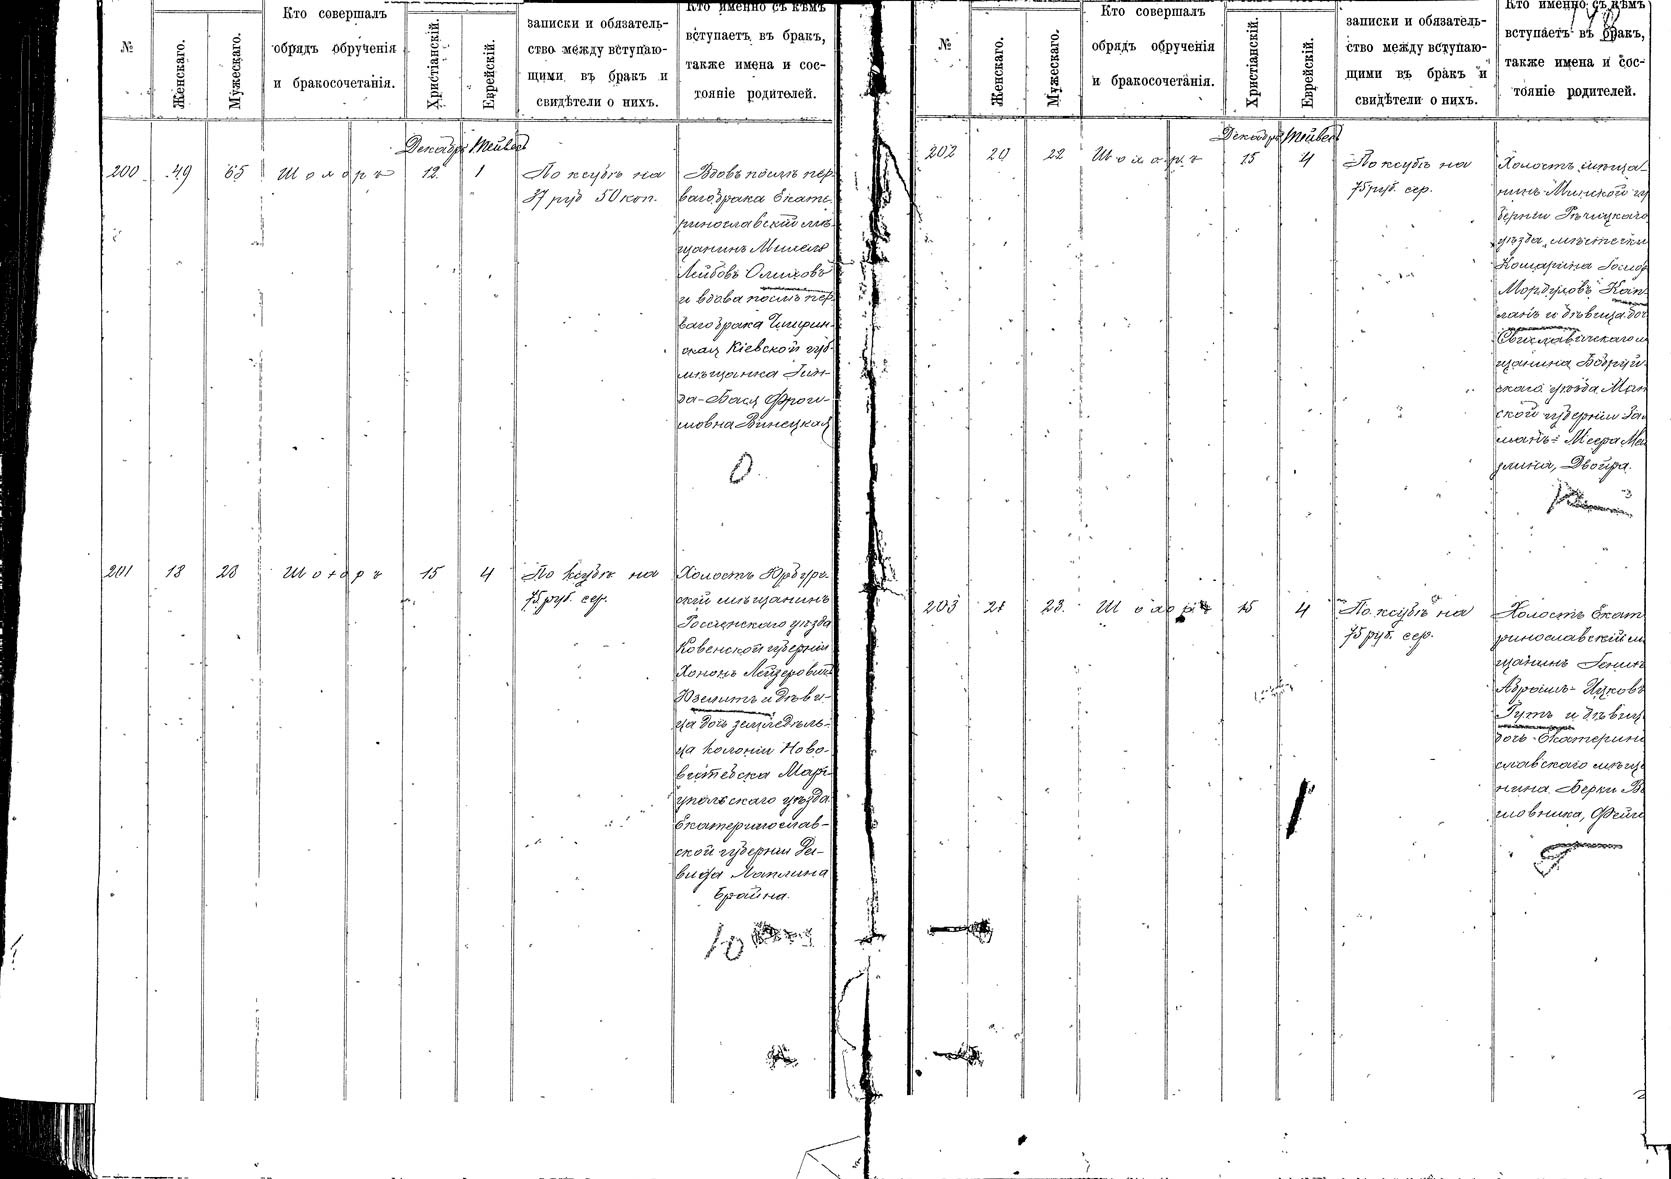 №
Женскаго.
Мужескаго.
Кто совершалъ
обрядъ обрученія
и бракосочетанія.
Христіанскій.
Еврейскій.
записки и обязатель-
ство между вступаю-
щими въ бракъ и
свидѣтели о нихъ.
Кто именно съ кѣмъ
вступаетъ въ бракъ,
также имена и сос-
тояніе родителей.
Декабрь Тейвесъ
200 49 65 Шолоръ 12 1
По ксубѣ на
37 руб 50 коп.
Вдовъ послѣ пер
ваго брака Екате-
ринославскій мѣ-
щанинъ
Лейбовъ
и вдова послѣ пер
ваго брака Чигрин-
ская Кіевской губ-
мѣщанка
да-Бася Фрои-
мовна Винецкая
О
201 18 23 Шолоръ 15 4
По ксубѣ на
75 руб. сер.
Холостъ Юрбург-
скій мѣщанинъ
Россіенскаго уѣзда
Ковенской губерніи
Хононъ Лейзеровичъ
и дѣви-
ца дочь земледѣль-
ца колоніи Ново-
витебска Марі-
упольскаго уѣзда
Екатеринослав-
ской губерніи Да-
вида Каплина
Брайна.
Ю
№
Женскаго.
Мужескаго.
Кто совершалъ
обрядъ обрученія
и бракосочетанія.
Христіанскій.
Еврейскій.
записки и обязатель-
ство между вступаю-
щими въ бракъ и
свидѣтели о нихъ.
Кто именно съ кѣмъ
вступаетъ въ бракъ,
также имена и сос-
тояніе родителей.
Декабрь Тейвесъ
202 20 22 Шолоръ 15 4
По ксубѣ на
75 руб. сер.
Холостъ мѣща-
нинъ Минской гу
берніи Рѣчицкаго
уѣзда, мѣстечки
Комарина
Мордуховъ Кап
ланъ и дѣвица доч
щанина Бобруй-
скаго уѣзда Мин
ской губерніи За
манъ-Меера
Двойра.
203 21 23 Шолоръ 15 4
По ксубѣ на
75 руб. сер.
Холостъ Екате
ринославскій м
щанинъ
Абрамъ-Ицковъ
Гутъ и дѣвиц
дочь Екатерино
славскаго мѣщ
нина Берки
мовника, Фейг
Г